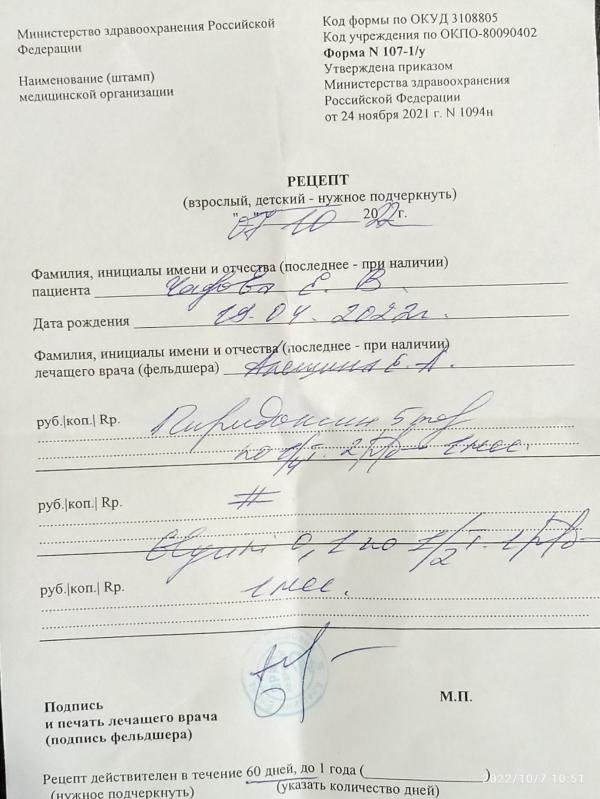 Министерство здравоохранения Российской
Федерации
Наименование (штамп)
медицинской организации
Код формы по ОКУД 3108805
Код учреждения по ОКПО-80090402
Форма N 107-1/у
Утверждена приказом
Министерства здравоохранения
Российской Федерации
от 24 ноября 2021 г. N 1094н
РЕЦЕПТ
(взрослый, детский - нужное подчеркнуть)
"07" 10 2022г.
Фамилия, инициалы имени и отчества (последнее - при наличии)
пациента Е. В.
Дата рождения 19.04.2022г.
Фамилия, инициалы имени и отчества (последнее - при наличии)
лечащего врача (фельдшера) Е. А.
руб.|коп.| Rp. Пиридоксин 5
по 1/4 т. 2 р/д 1 мес.
руб.|коп.| Rp. #
0,1 по 1/2 т. 1 р/д
руб.|коп.| Rp. 1 мес.
Подпись
и печать лечащего врача
(подпись фельдшера)
М.П.
Рецепт действителен в течение 60 дней, до 1 года (
)
(нужное подчеркнуть)
(указать количество дней)
2022/10/7 10:51